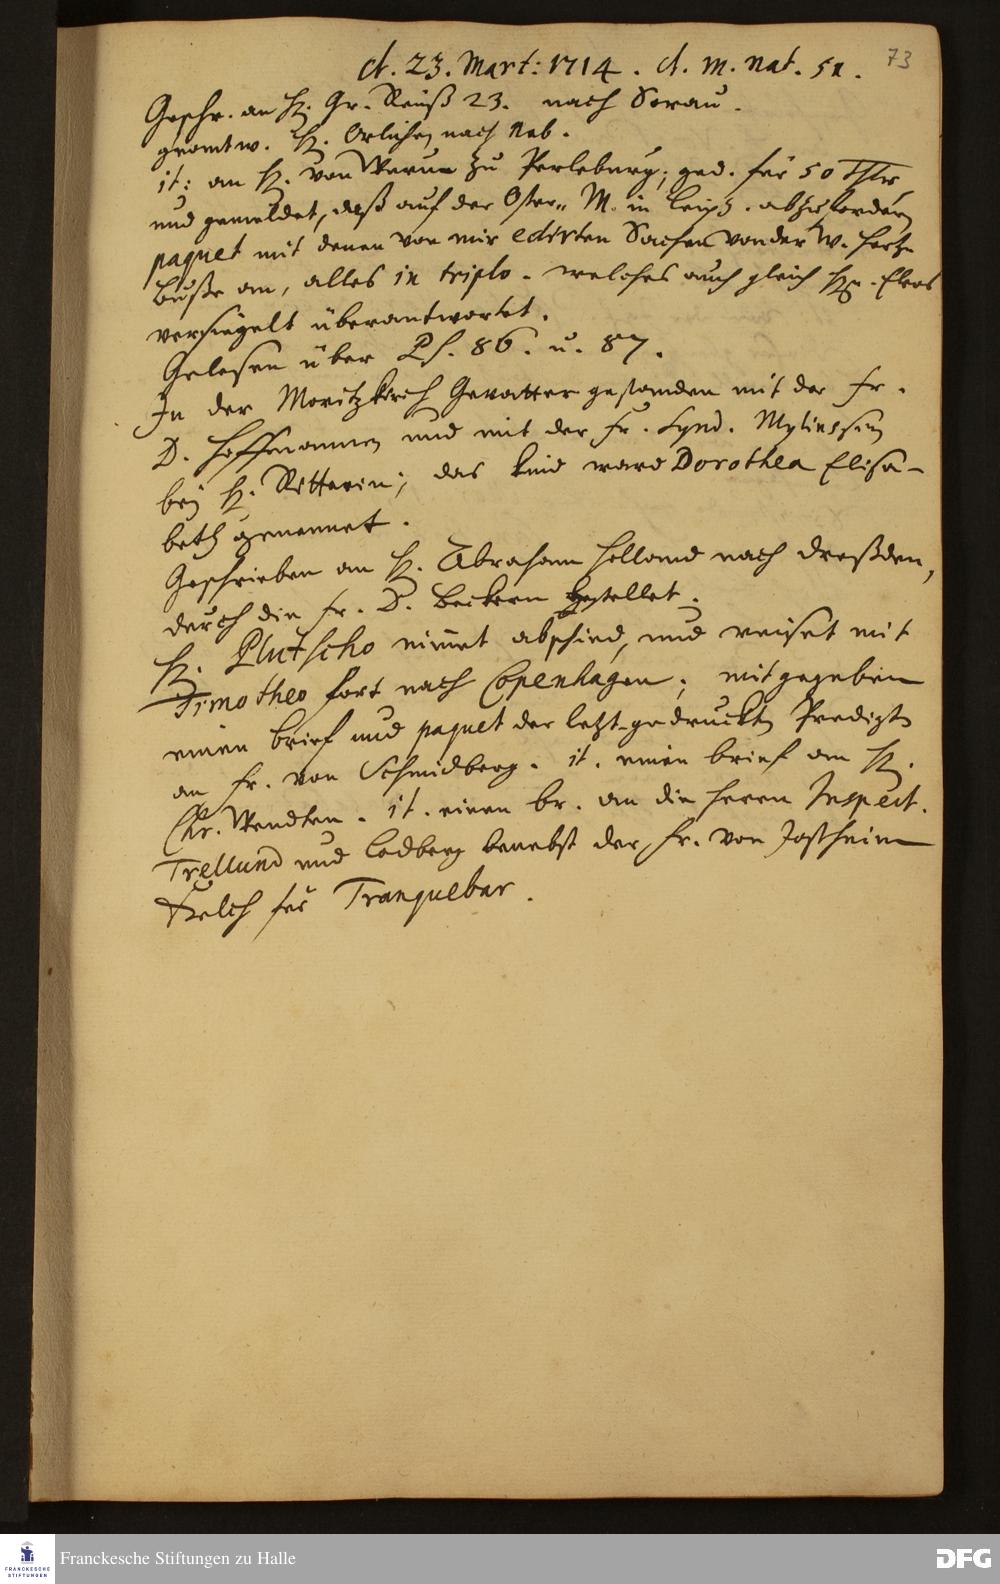 d. 23. Mart: 1714. d. m. nat. 51.
73
Geschr. an H. Gr. Reuß 23. nach Sorau.
geantw. H. Orlichen nach Neb.
it: an H. von Perleburg; ged. für 50 Thlr
und gemeldet, daß auf der Oster M. in Leipz. abzufordern
paquet mit denen von mir edirten Sachen von der W. Hertz
Buße an, alles in triplo. welches auch gleich Hn. Elers
versiegelt überantwortet.
Gelesen über Ps. 86. u. 87.
In der Moritzkirch Gevatter gestanden mit der Fr.
D. Hoffmannin und mit der Fr. Synd. Myliussin
bey H. Rittern; das Kind ward Dorothea Elisa-
beth genennet.
Geschrieben an H. Abraham Holland nach Dreßden,
durch die Fr. D. Beckern bestellet.
H. Plutscho nimmt abschied, und reiset mit
Timotheo fort nach Copenhagen; mitgegeben
einen brief und paquet der letzt-gedruckten Predigten
an Fr. von Schmidberg. it. einen brief an H.
Chr. Wendten. it. einen br. an die Herrn Inspect.
Trellund und Lodberg benebst der Fr. von Jostheim
Kelch für Tranquebar.
Franckesche Stiftungen zu Halle
FRANCKESCHE
STIFTUNGEN
DFG